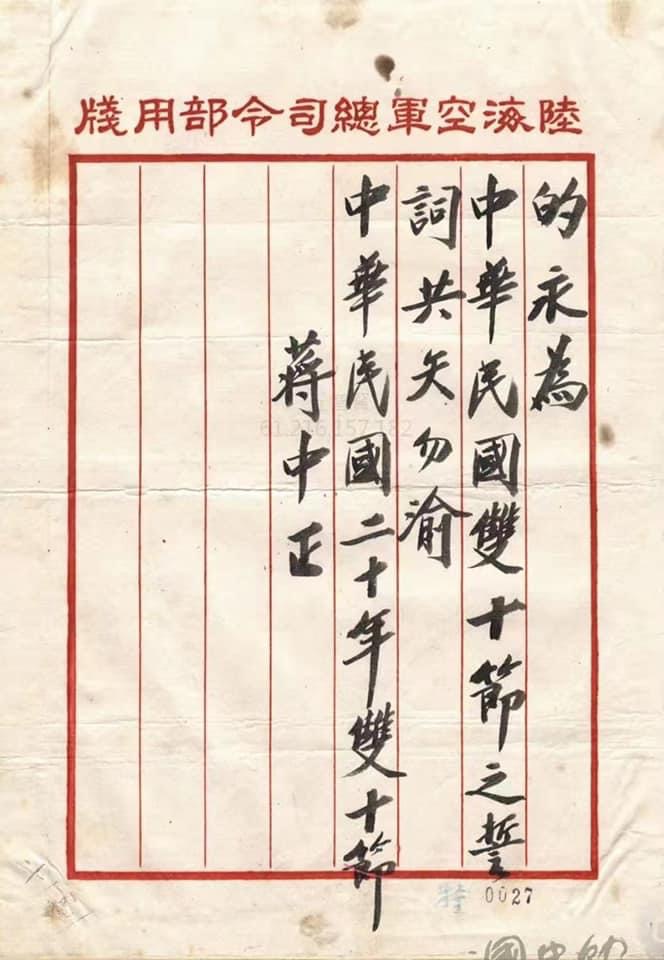 陸海空軍總司令部用牋
的永為
中華民國雙十節之誓
詞共矢勿渝
中華民國二十年雙十節
蔣中正
61.216.157.182
0027